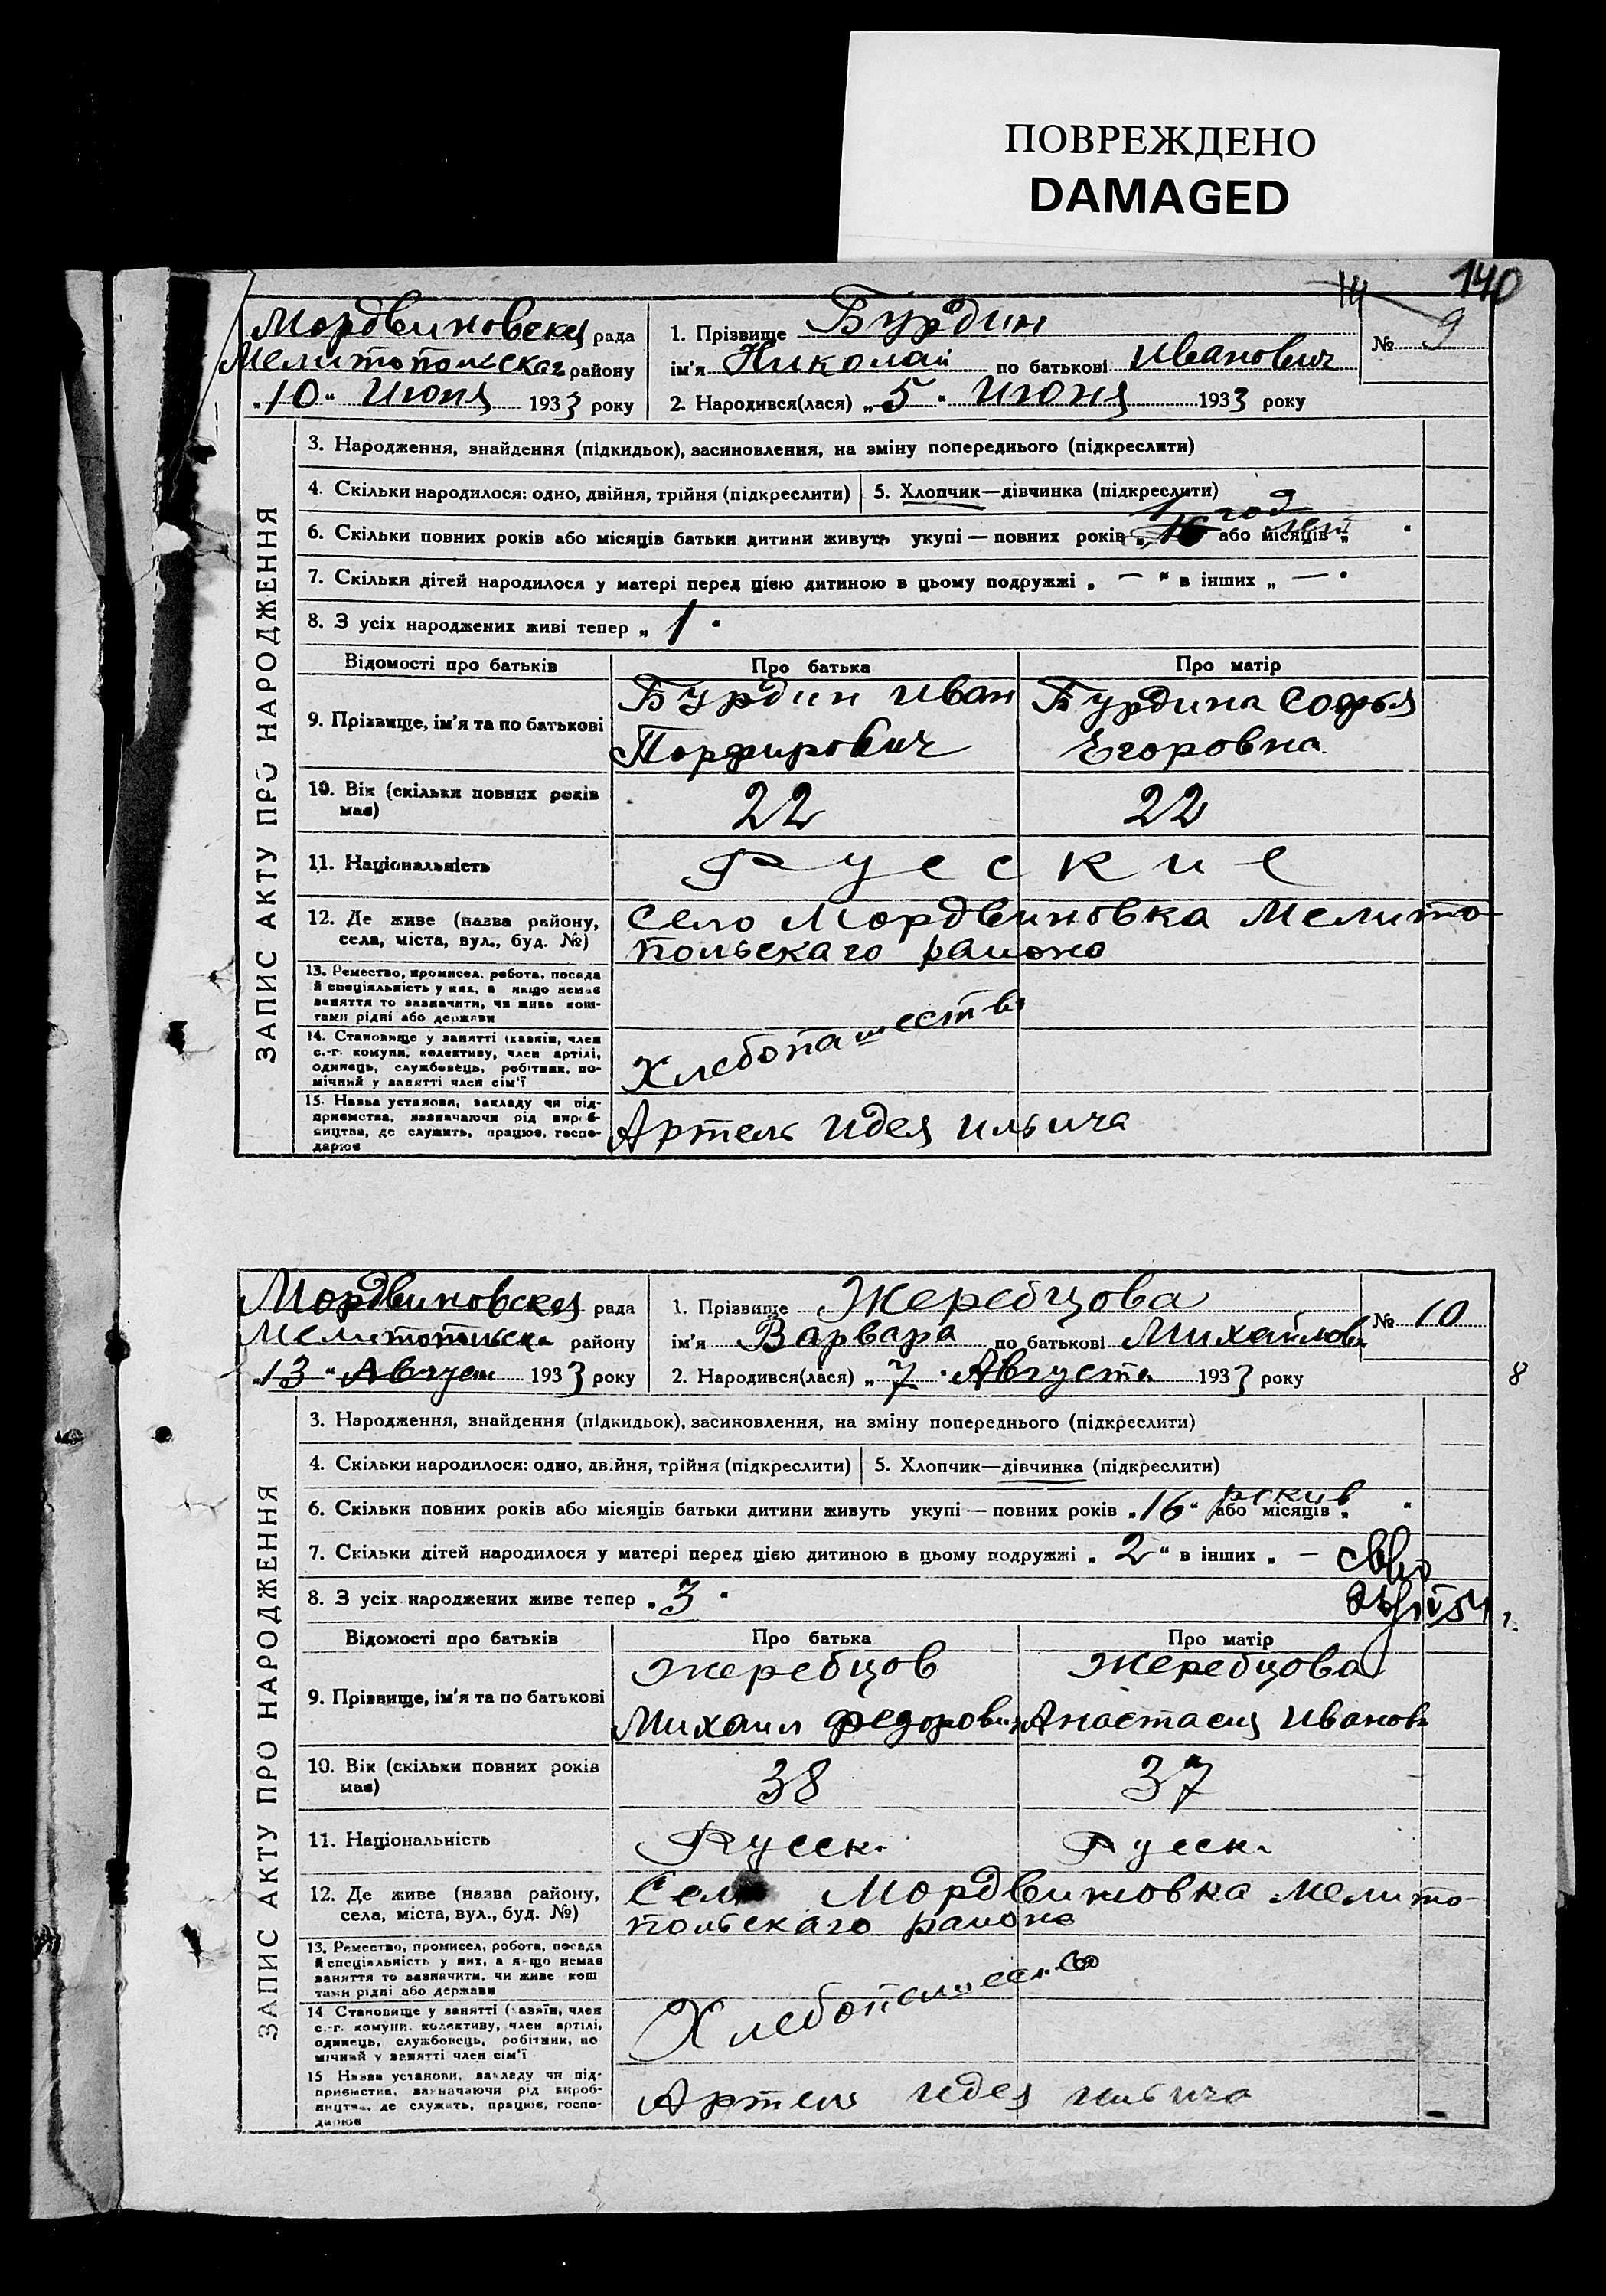 ПОВРЕЖДЕНО
DAMAGED
14 140
Мордвиновская рада
Мелитопольская району
„10“ Июня 1933 року
1. Прізвище Бурдин
ім'я Николай по батькові Иванович
№ 9
2. Народився(лася) „5“ Июня 1933 року
ЗАПИС АКТУ ПРО НАРОДЖЕННЯ
3. Народження, знайдення (підкидьок), засиновлення, на зміну попереднього (підкреслити)
4. Скільки народилося: одно, двійня, трійня (підкреслити) 5. Хлопчик—дівчинка (підкреслити)
6. Скільки повних років або місяців батьки дитини живуть укупі — повних років „ 1 год або місяців „
7. Скільки дітей народилося у матері перед цією дитиною в цьому подружжі „ — “ в інших „ — “
8. З усіх народжених живі тепер „ 1 “
Відомості про батьків Про батька Про матір
9. Прізвище, ім'я та по батькові
Бурдин Иван
Порфирович
Бурдина Софья
Егоровна
10. Вік (скільки повних років
має)
22 22
11. Національність Русские
12. Де живе (назва району,
села, міста, вул., буд. №)
Село Мордвиновка Мелито-
польскаго района
13. Ремество, промисел, робота, посада
й спеціяльність у них, а якщо немає
заняття то зазначити, чи живе кош-
тами рідні або держави
14. Становище у занятті (хазяїн, член
с.-г. комуни, колективу, член артілі,
одинець, службовець, робітник, по-
мічний у занятті член сім'ї
Хлебопашество
15. Назва установи, закладу чи під-
приємства, зазначаючи рід вироб-
ництва, де служить, працює, госпо-
дарює
Артель Идея Ильича
Мордвиновская рада
Мелитопольска району
„13“ Август 1933 року
1. Прізвище Жеребцова
ім'я Варвара по батькові Михайловн
№ 10
2. Народився(лася) „7“ Августа 1933 року
8
ЗАПИС АКТУ ПРО НАРОДЖЕННЯ
3. Народження, знайдення (підкидьок), засиновлення, на зміну попереднього (підкреслити)
4. Скільки народилося: одно, двійня, трійня (підкреслити) 5. Хлопчик—дівчинка (підкреслити)
6. Скільки повних років або місяців батьки дитини живуть укупі — повних років „16“ рокив або місяців „ “
7. Скільки дітей народилося у матері перед цією дитиною в цьому подружжі „2“ в інших „ —
8. З усіх народжених живе тепер „3“
Відомості про батьків Про батька Про матір
9. Прізвище, ім'я та по батькові
Жеребцов
Михаил Федорович
Жеребцова
Анастасия Ивановн
10. Вік (скільки повних років
має)
38 37
11. Національність Русск. Русск.
12. Де живе (назва району,
села, міста, вул., буд. №)
Село Мордвиновка Мелито-
польскаго района
13. Ремество, промисел, робота, посада
й спеціяльність у них, а якщо немає
заняття то зазначити, чи живе кош
тами рідні або держави
14. Становище у занятті (хазяїн, член
с.-г. комуни, колективу, член артілі,
одинець, службовець, робітник, по
мічний у занятті член сім'ї
Хлебопашество
15 Назва установи, закладу чи під-
приємства, зазначаючи рід вироб-
ництва, де служить, працює, госпо-
дарює
Артель Идея Ильича